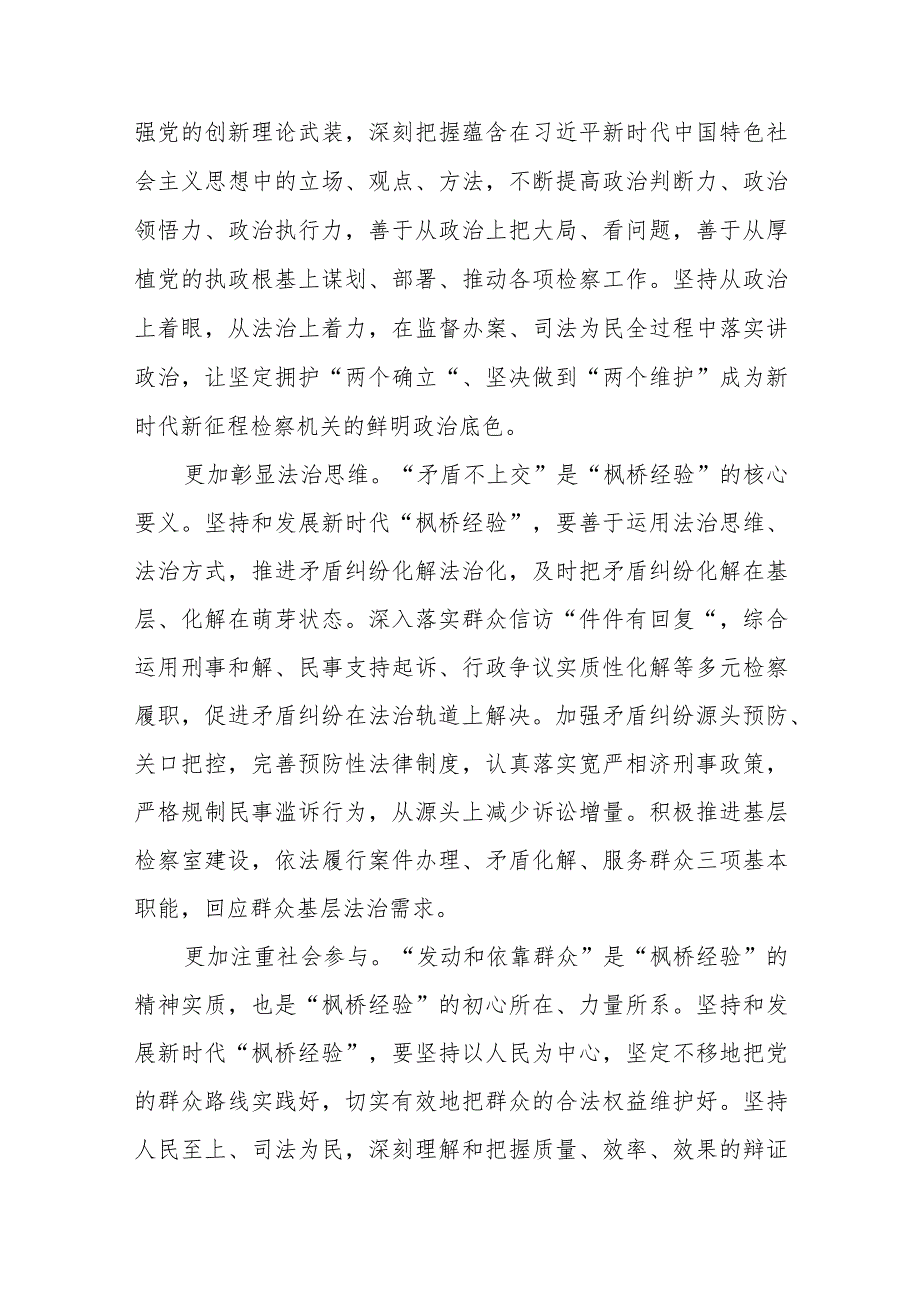 强党的创新理论武装，深刻把握蕴含在习近平新时代中国特色社
会主义思想中的立场、观点、方法，不断提高政治判断力、政治
领悟力、政治执行力，善于从政治上把大局、看问题，善于从厚
植党的执政根基上谋划、部署、推动各项检察工作。坚持从政治
上着眼，从法治上着力，在监督办案、司法为民全过程中落实讲
政治，让坚定拥护“两个确立“、坚决做到“两个维护”成为新
时代新征程检察机关的鲜明政治底色。
更加彰显法治思维。“矛盾不上交”是“枫桥经验”的核心
要义。坚持和发展新时代“枫桥经验”，要善于运用法治思维、
法治方式，推进矛盾纠纷化解法治化，及时把矛盾纠纷化解在基
层、化解在萌芽状态。深入落实群众信访“件件有回复“，综合
运用刑事和解、民事支持起诉、行政争议实质性化解等多元检察
履职，促进矛盾纠纷在法治轨道上解决。加强矛盾纠纷源头预防、
关口把控，完善预防性法律制度，认真落实宽严相济刑事政策，
严格规制民事滥诉行为，从源头上减少诉讼增量。积极推进基层
检察室建设，依法履行案件办理、矛盾化解、服务群众三项基本
职能，回应群众基层法治需求。
更加注重社会参与。“发动和依靠群众”是“枫桥经验”的
精神实质，也是“枫桥经验”的初心所在、力量所系。坚持和发
展新时代“枫桥经验”，要坚持以人民为中心，坚定不移地把党
的群众路线实践好，切实有效地把群众的合法权益维护好。坚持
人民至上、司法为民，深刻理解和把握质量、效率、效果的辩证